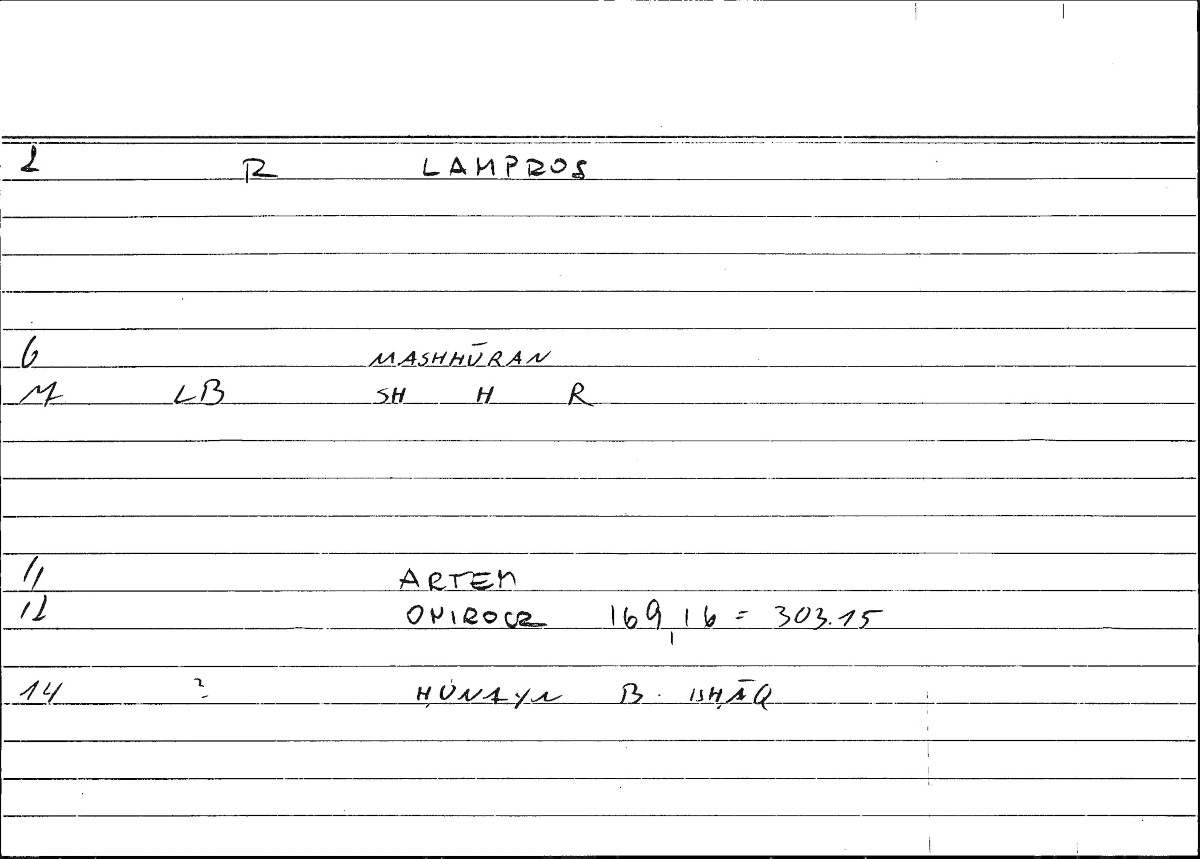 2 R LAMPROS
6 MASHHŪRAN
M LB SH H R
11 ARTEM
12 169,16 = 303.15
14 ? ḤUNAYN B. ISḤĀQ